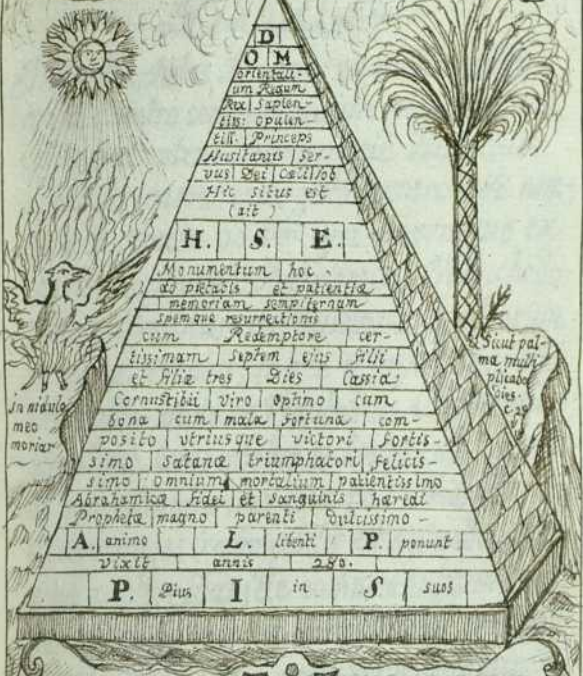 D
O M
orientali-
um Regum
Rex Sapien-
tiss: opulen-
tiss. Princeps
Husitanus Ser-
vus Dei Coeli Iob
Hic situs est
(ait)
H. S. E.
Monumentum hoc
ad pietatis et patientiæ
memoriam sempiternam
spemque resurrectionis
cum Redemptore cer-
tissimam septem ejus filii
et filiæ tres Dies Cassia
Cornustibii viro optimo cum
bona cum mala fortuna com-
posito utriusque victori fortis-
simo Satanæ triumphatori felicis-
simo omnium mortalium patientissimo
Abrahamicæ fidei et sanguinis hæredi
Prophetæ magno parenti dulcissimo -
A. animo L. libenti P. ponunt
vixit annis 280.
P. Pius I in S suos
in nidulo
meo
moriar
Sicut pal-
ma multi
plicabo
dies.
c. 29